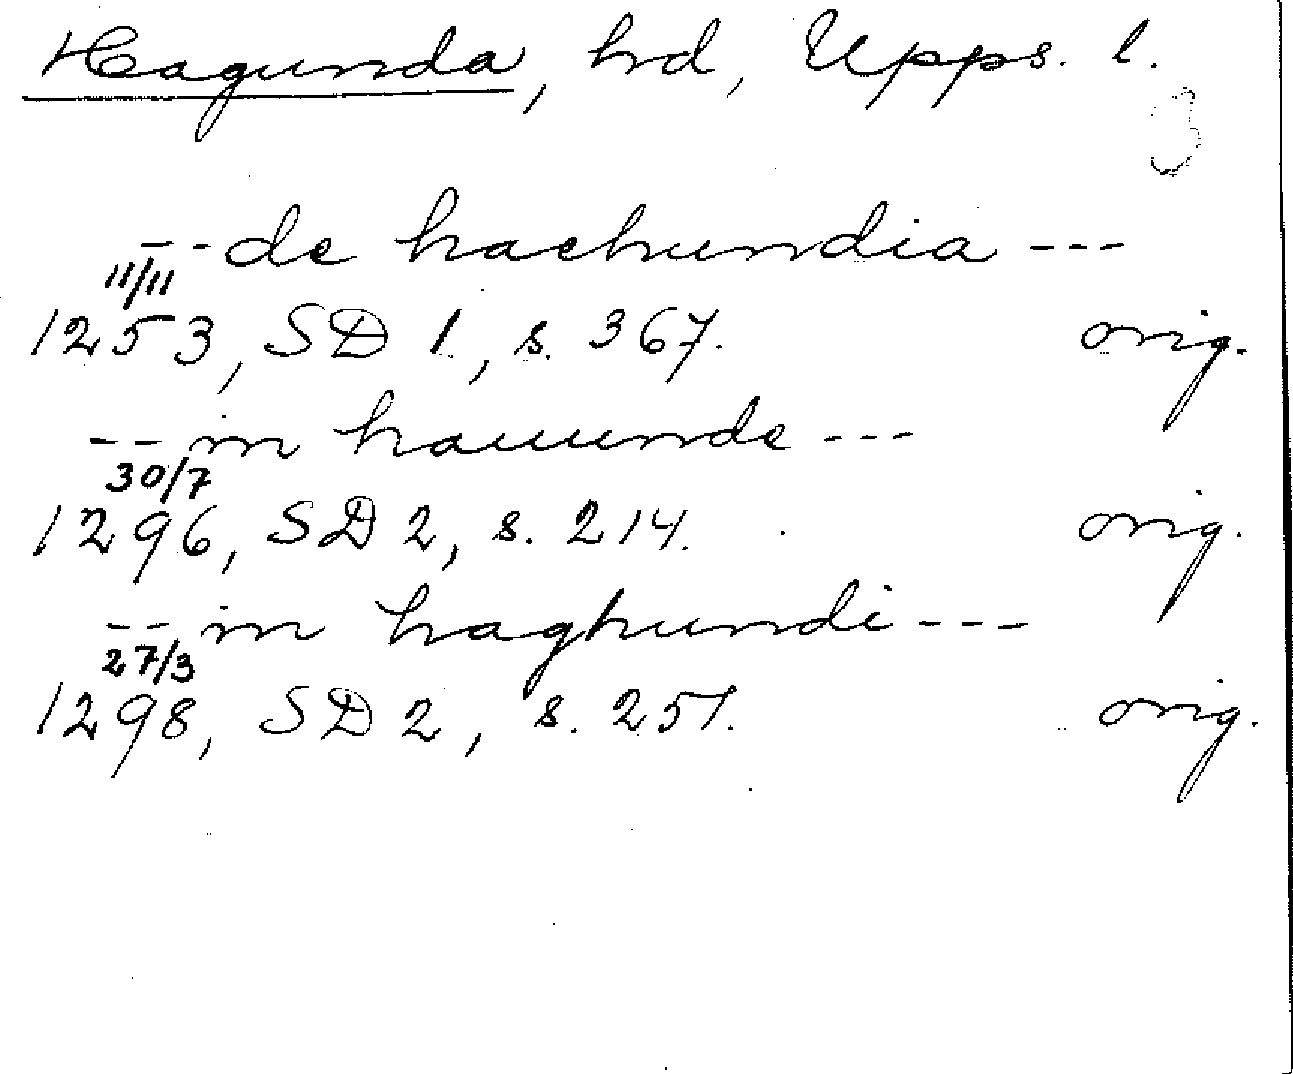 Hagunda, hd, Upps. l.
3
--- de hachundia ---
11/11
1253, SD 1, s. 367. orig.
--- in hauunde ---
30/7
1296, SD 2, s. 214. orig.
--- in haghundi ---
27/3
1298, SD 2, s. 251. orig.